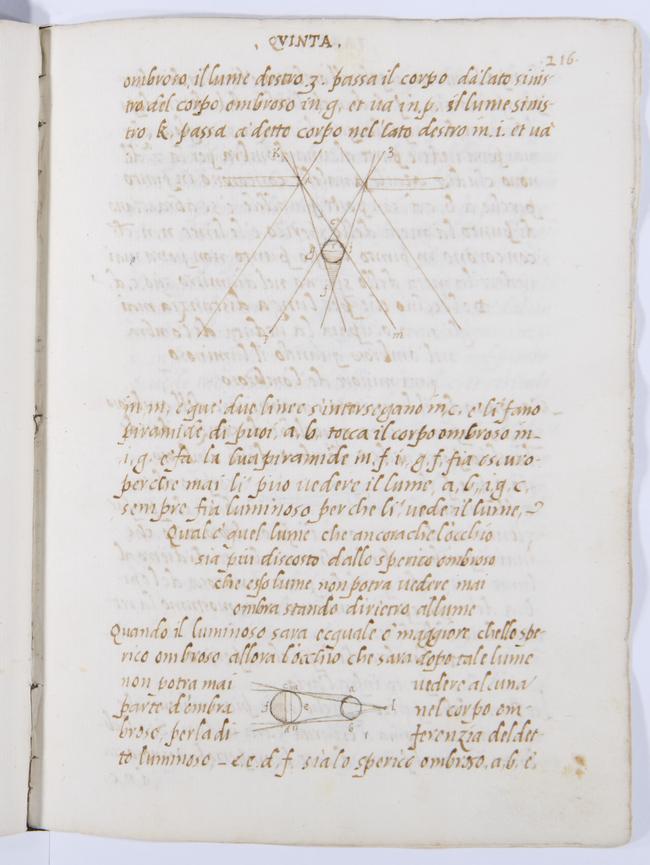 . QVINTA .
216.
ombroso, il lume destro 3. passa il corpo da lato sinis
tro del corpo ombroso in. g. et ua in. p. il lume sinis
tro, k, passa a detto corpo nel lato destro in. i. et ua
k 3
c
g i
f
m
in m, e que due linee s'intersegano in c. e li fano
piramide, di puoi, a. b. tocca il corpo ombroso in
.i, g. e fa la sua piramide in. f. i, g. f, fia oscuro
perche mai li puo uedere il lume, a, b, i, g. c,
sempre fia luminoso perche li uede il lume,
Qual è quel lume che ancora che l'occhio
sia piu discosto dallo sperico ombroso
che esso lume, non potra uedere mai
ombra stando dirietro, al lume
Quando il luminoso sara equale e maggiore chello spe
rico ombroso allora l'occhio che sara dopo tale lume
non potra mai uedere alcuna
parte d'ombra nel corpo om
broso, per la di ferenzia del det
to luminoso _ c. e. d. f. sia lo sperico ombroso, a. b. è